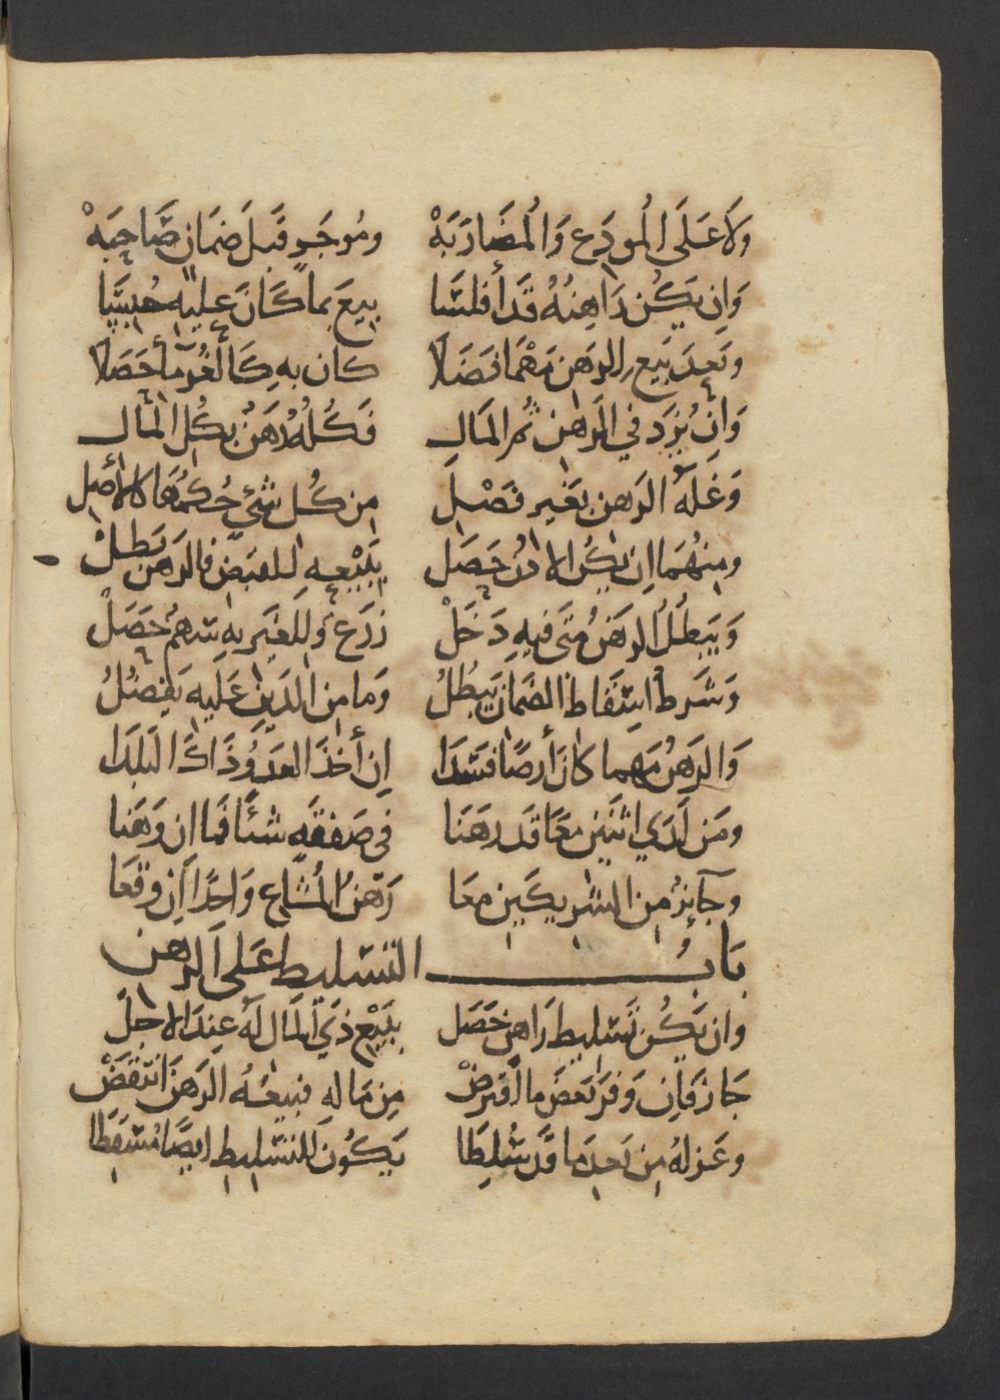 وَلَا عَلَى الُمودَع وَالُمضَارَبَهْ ومُوجَرٍ قَبلَ ضمَان صَاحِبَهْ
وَاِن يَكُن رَاهِنُهُ قَد أفلسَا بِيعَ بما كَانَ عليه حُبِسَا
وبَعدَ بَيع الرهن مَهْمَا فضَلَا كان به كَالغُرمَا أحَصَلَا
وَاِن يُزَد في الرَهن ثم المَال فَكُلهُ رَهنٌ بكُل المَال
وَغَلة الرَهن بغَير فَصْل مِن كُل شَيءٍ حُكمُهَا الأصِل
ومِنهُمَا اِن يَكُن الاذنُ حَصَل بِبَيْعهِ لِلقبَض فالرَهن بَطلْ
وَيَبطُلُ الرهَنُ مَتَى فيهِ دَخَلْ زرَع وَللغَير بِهِ سَهمٌ حَصَلْ
وَشَرطُ اسقَاط الضمَان يَبطُلُ وَما مِن الدَين عَلَيه يَفضُلُ
وَالرَهنُ مَهما كانَ أرضًا فسَدَا اِن أخَذَ العَدوُّ ذَاكَ البَلَدَا
ومَن لَدَي اثنَين مَعًا قَد رهَنَا فى صَفقَةٍ شئًا فَما ان وَهَنا
وجَآئزٌ مِن الشريكَين مَعَا رَهنُ المُشَاع وَاحدًا اِن وقعَا
بَابُ التسليط عَلى الرهن
وان يَكُن تَسليط رَاهن حَصَل بِبَيْع ذي المَال لهُ عِندَ الاجلْ
جَاز فَاِن وَفرَ بَعضَ ما اقترضْ مِن مَاله فبيعُهُ الرَهنَ انتقَضْ
وعَزلهُ مِن بَعدِ مَا قَد سُلِطَا يَكُون للتسليط ايضًا مُسقطَا